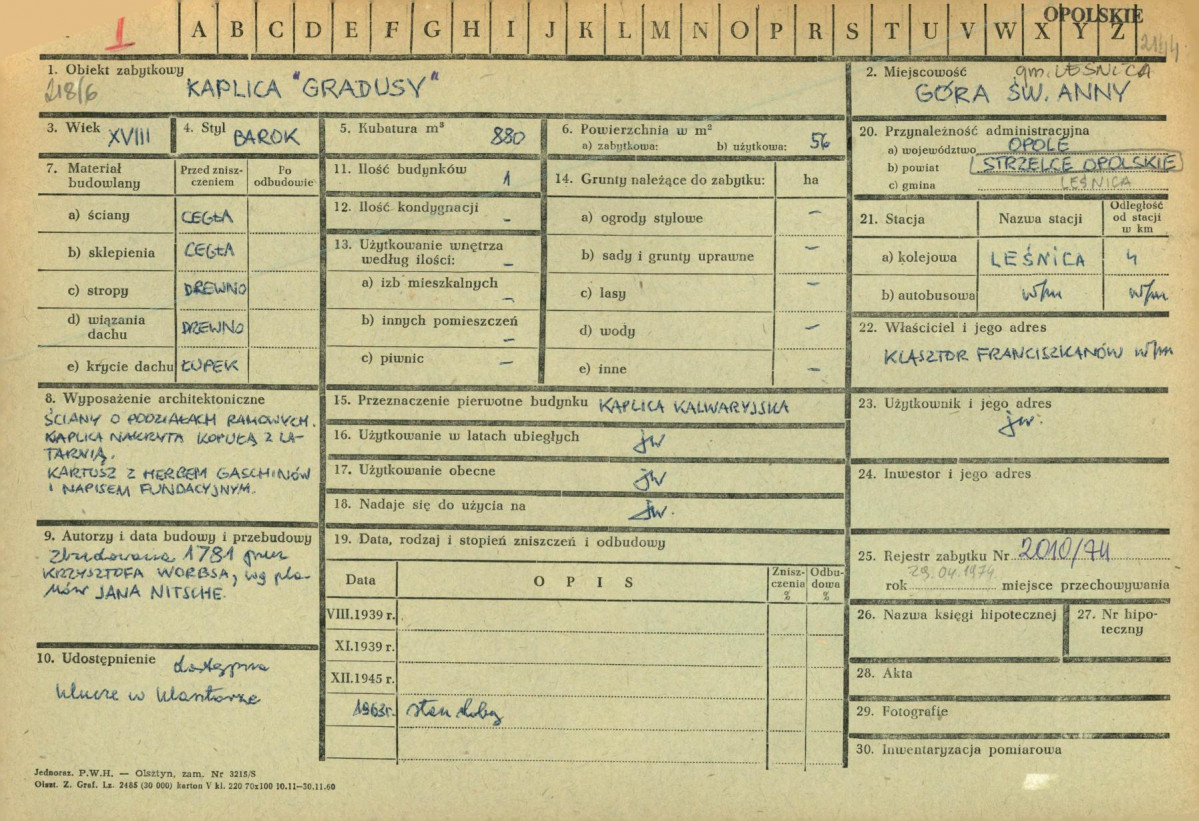 OPOLSKIE
1 A B C D E F G H I J K L M N O P R S T U V W X Y Z 2144
1. Obiekt zabytkowy
218/6 KAPLICA "GRADUSY"
2. Miejscowość gm. LEŚNICA
GÓRA ŚW. ANNY
3. Wiek XVIII
4. Styl BAROK
5. Kubatura m³ 880
6. Powierzchnia w m²
a) zabytkowa: b) użytkowa: 56
20. Przynależność administracyjna
a) województwo OPOLE
b) powiat STRZELCE OPOLSKIE
c) gmina LEŚNICA
7. Materiał budowlany
Przed znisz-
czeniem
Po
odbudowie
a) ściany CEGŁA
b) sklepienia CEGŁA
c) stropy DREWNO
d) wiązania
dachu DREWNO
e) krycie dachu ŁUPEK
11. Ilość budynków 1
12. Ilość kondygnacji –
13. Użytkowanie wnętrza
według ilości: –
a) izb mieszkalnych –
b) innych pomieszczeń –
c) piwnic –
14. Grunty należące do zabytku: ha
a) ogrody stylowe –
b) sady i grunty uprawne –
c) lasy –
d) wody –
e) inne –
21. Stacja Nazwa stacji
Odległość
od stacji
w km
a) kolejowa LEŚNICA 4
b) autobusowa w/m w/m
22. Właściciel i jego adres
KLASZTOR FRANCISZKANÓW w/m
8. Wyposażenie architektoniczne
ŚCIANY O PODZIAŁACH RAMOWYCH.
KAPLICA NAKRYTA KOPUŁĄ Z LA-
TARNIĄ.
KARTUSZ Z HERBEM GASCHINÓW
I NAPISEM FUNDACYJNYM.
15. Przeznaczenie pierwotne budynku KAPLICA KALWARYJSKA
16. Użytkowanie w latach ubiegłych jw
17. Użytkowanie obecne jw
18. Nadaje się do użycia na jw.
23. Użytkownik i jego adres
jw.
24. Inwestor i jego adres
9. Autorzy i data budowy i przebudowy
Zbudowana 1781 przez
KRZYSZTOFA WORBSA, wg pla-
nów JANA NITSCHE.
10. Udostępnienie dostępna
klucze w klasztorze
19. Data, rodzaj i stopień zniszczeń i odbudowy
Data O P I S
Znisz-
czenia
%
Odbu-
dowa
%
VIII.1939 r.
XI.1939 r.
XII.1945 r.
1963r. stan dobry
25. Rejestr zabytku Nr 2010/74
29.04.1974
rok miejsce przechowywania
26. Nazwa księgi hipotecznej
27. Nr hipo-
teczny
28. Akta
29. Fotografie
30. Inwentaryzacja pomiarowa
Jednoraz. P.W.H. — Olsztyn, zam. Nr 3215/S
Olszt. Z. Graf. Lz. 2485 (30 000) karton V kl. 220 70x100 10.11—30.11.60